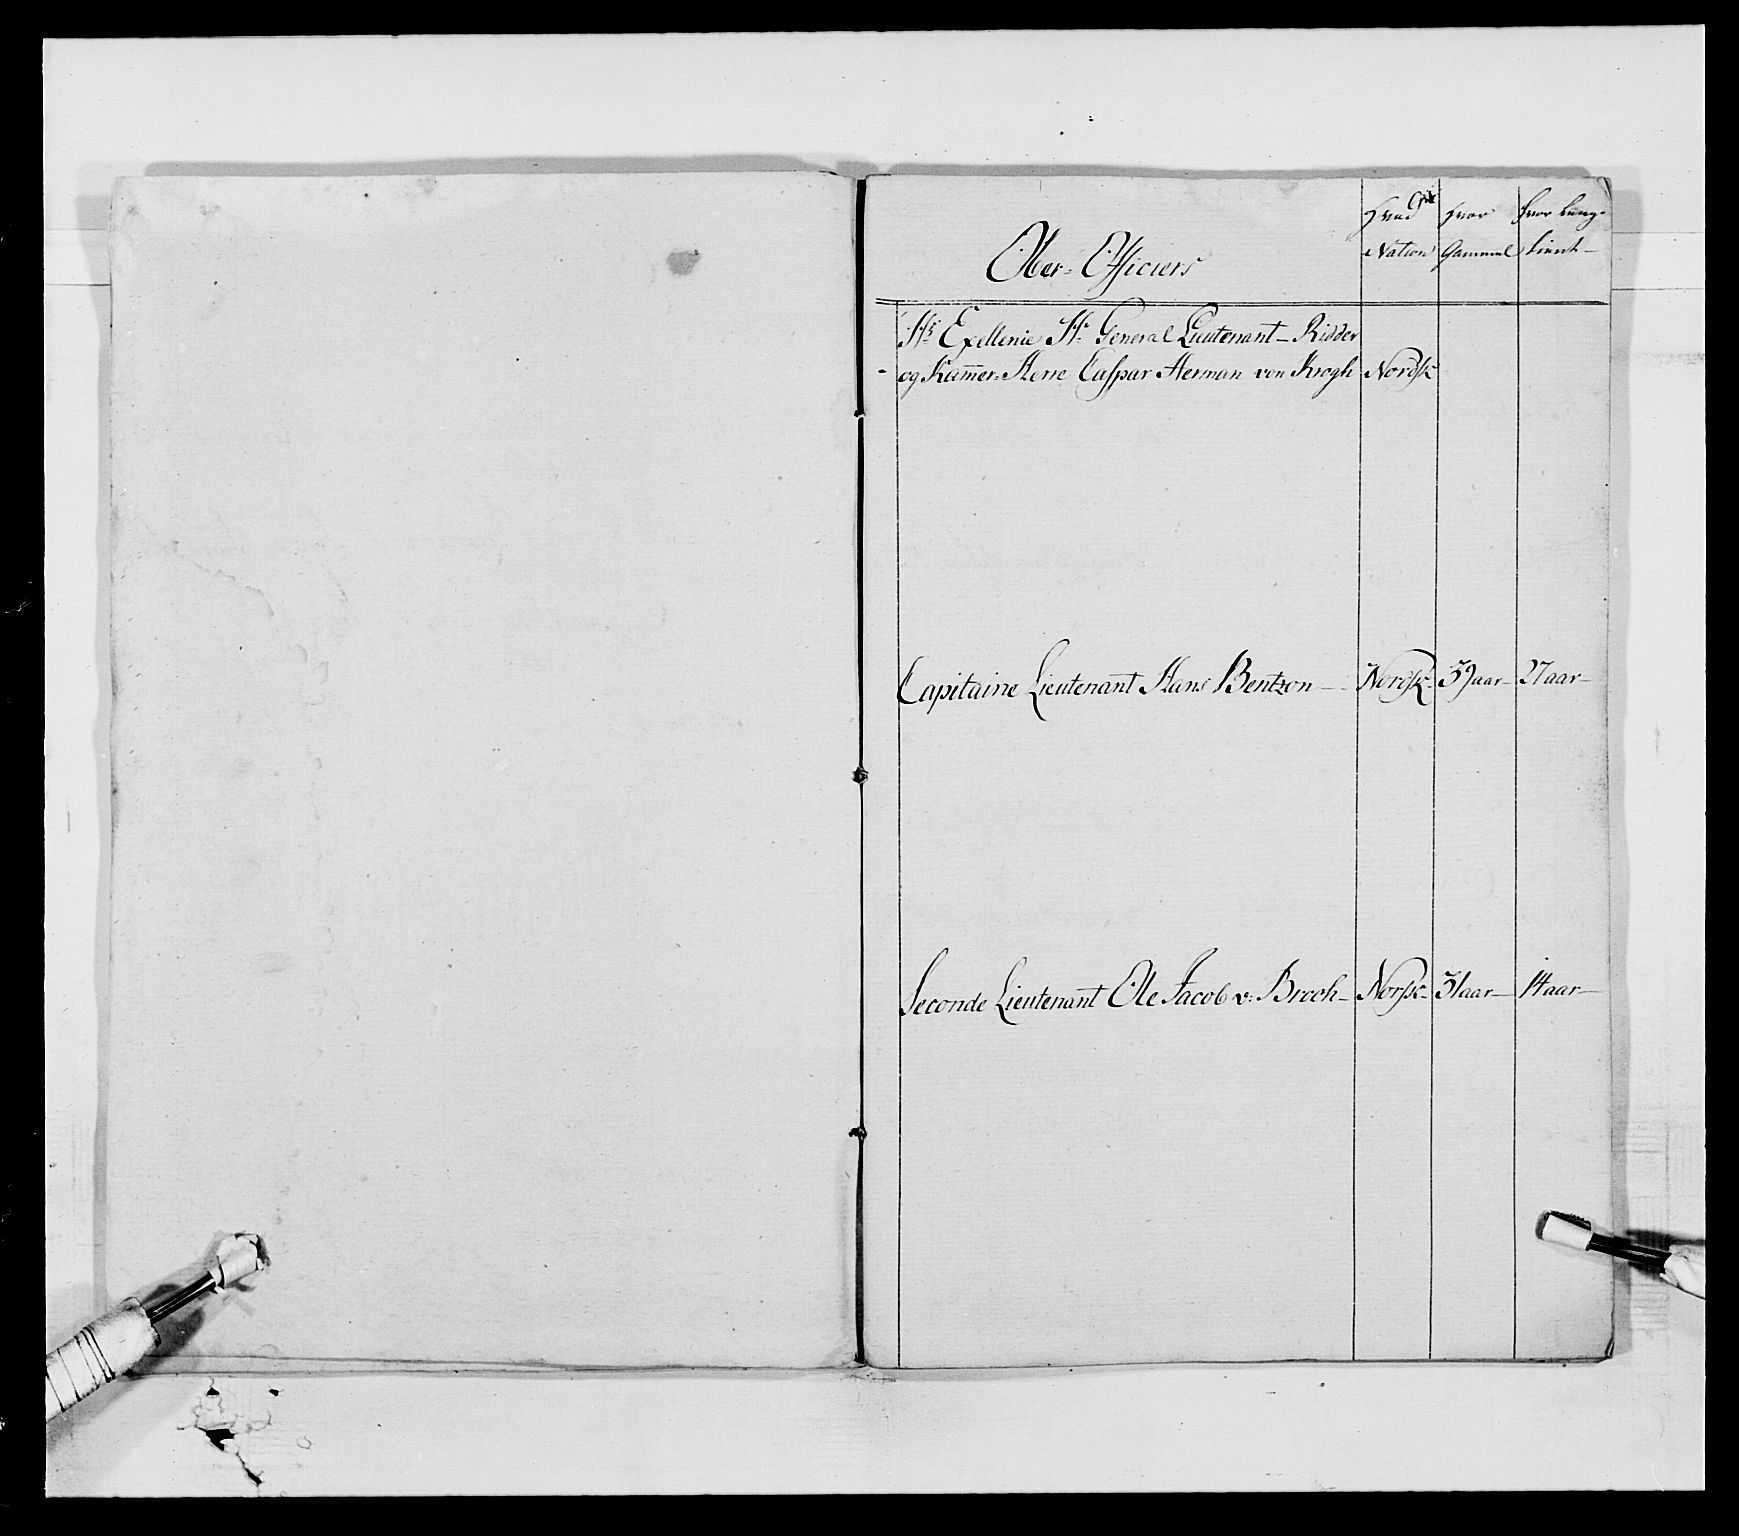 Ober-Officiers
Hvad Hvor Hvor læng.
Nation Gammel tient
Hs Exellenie Hr General Lieutenant Ridder
og Kam̄er-Herre Caspar Herman von Krogh Nordsk
Capitaine Lieutenant Hans Bentzon Nordsk 39 aar 27 aar
Seconde Lieutenant Ole Jacob v: Broch Norsk 31 aar 14 aar